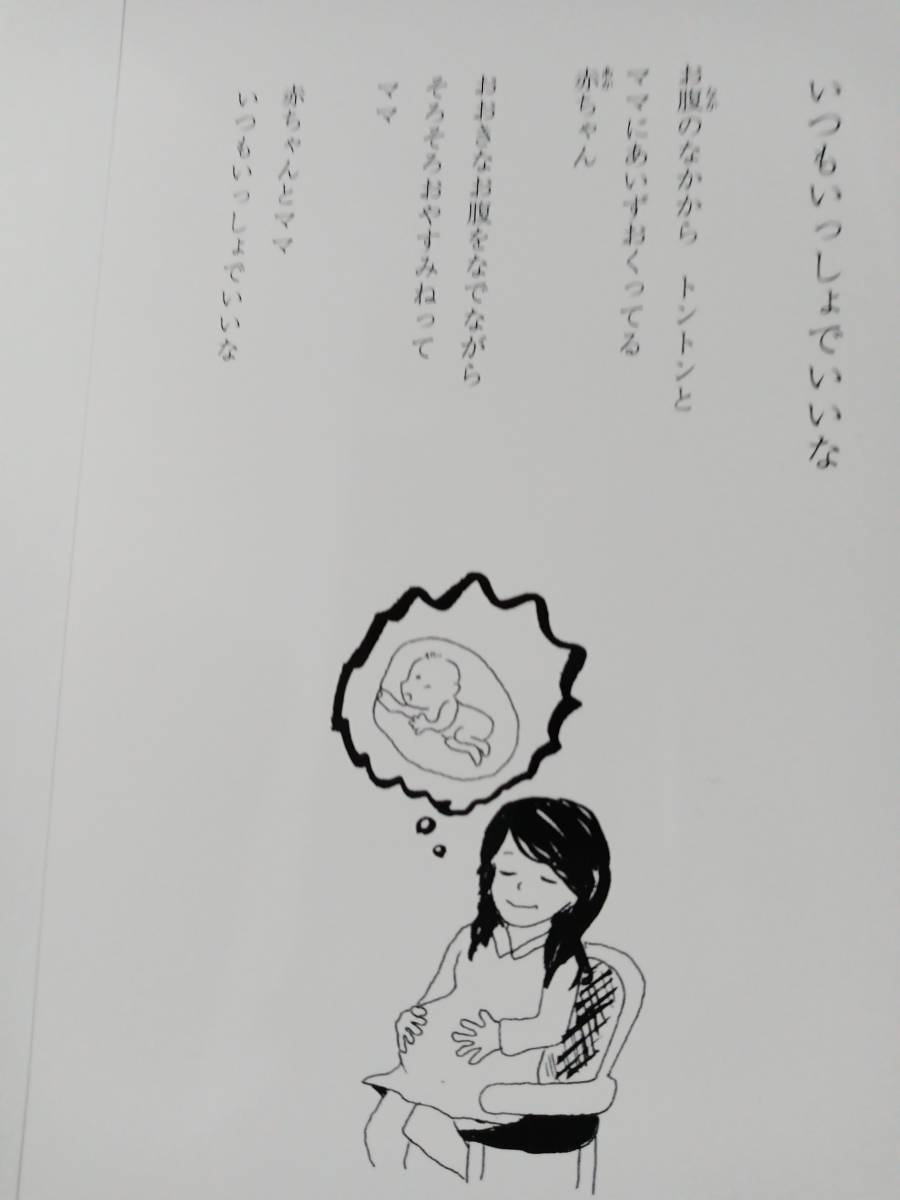 いつもいっしょでいいな
お腹のなかから　トントンと
ママにあいずおくってる
赤ちゃん
おおきなお腹をなでながら
そろそろおやすみねって
ママ
赤ちゃんとママ
いつもいっしょでいいな